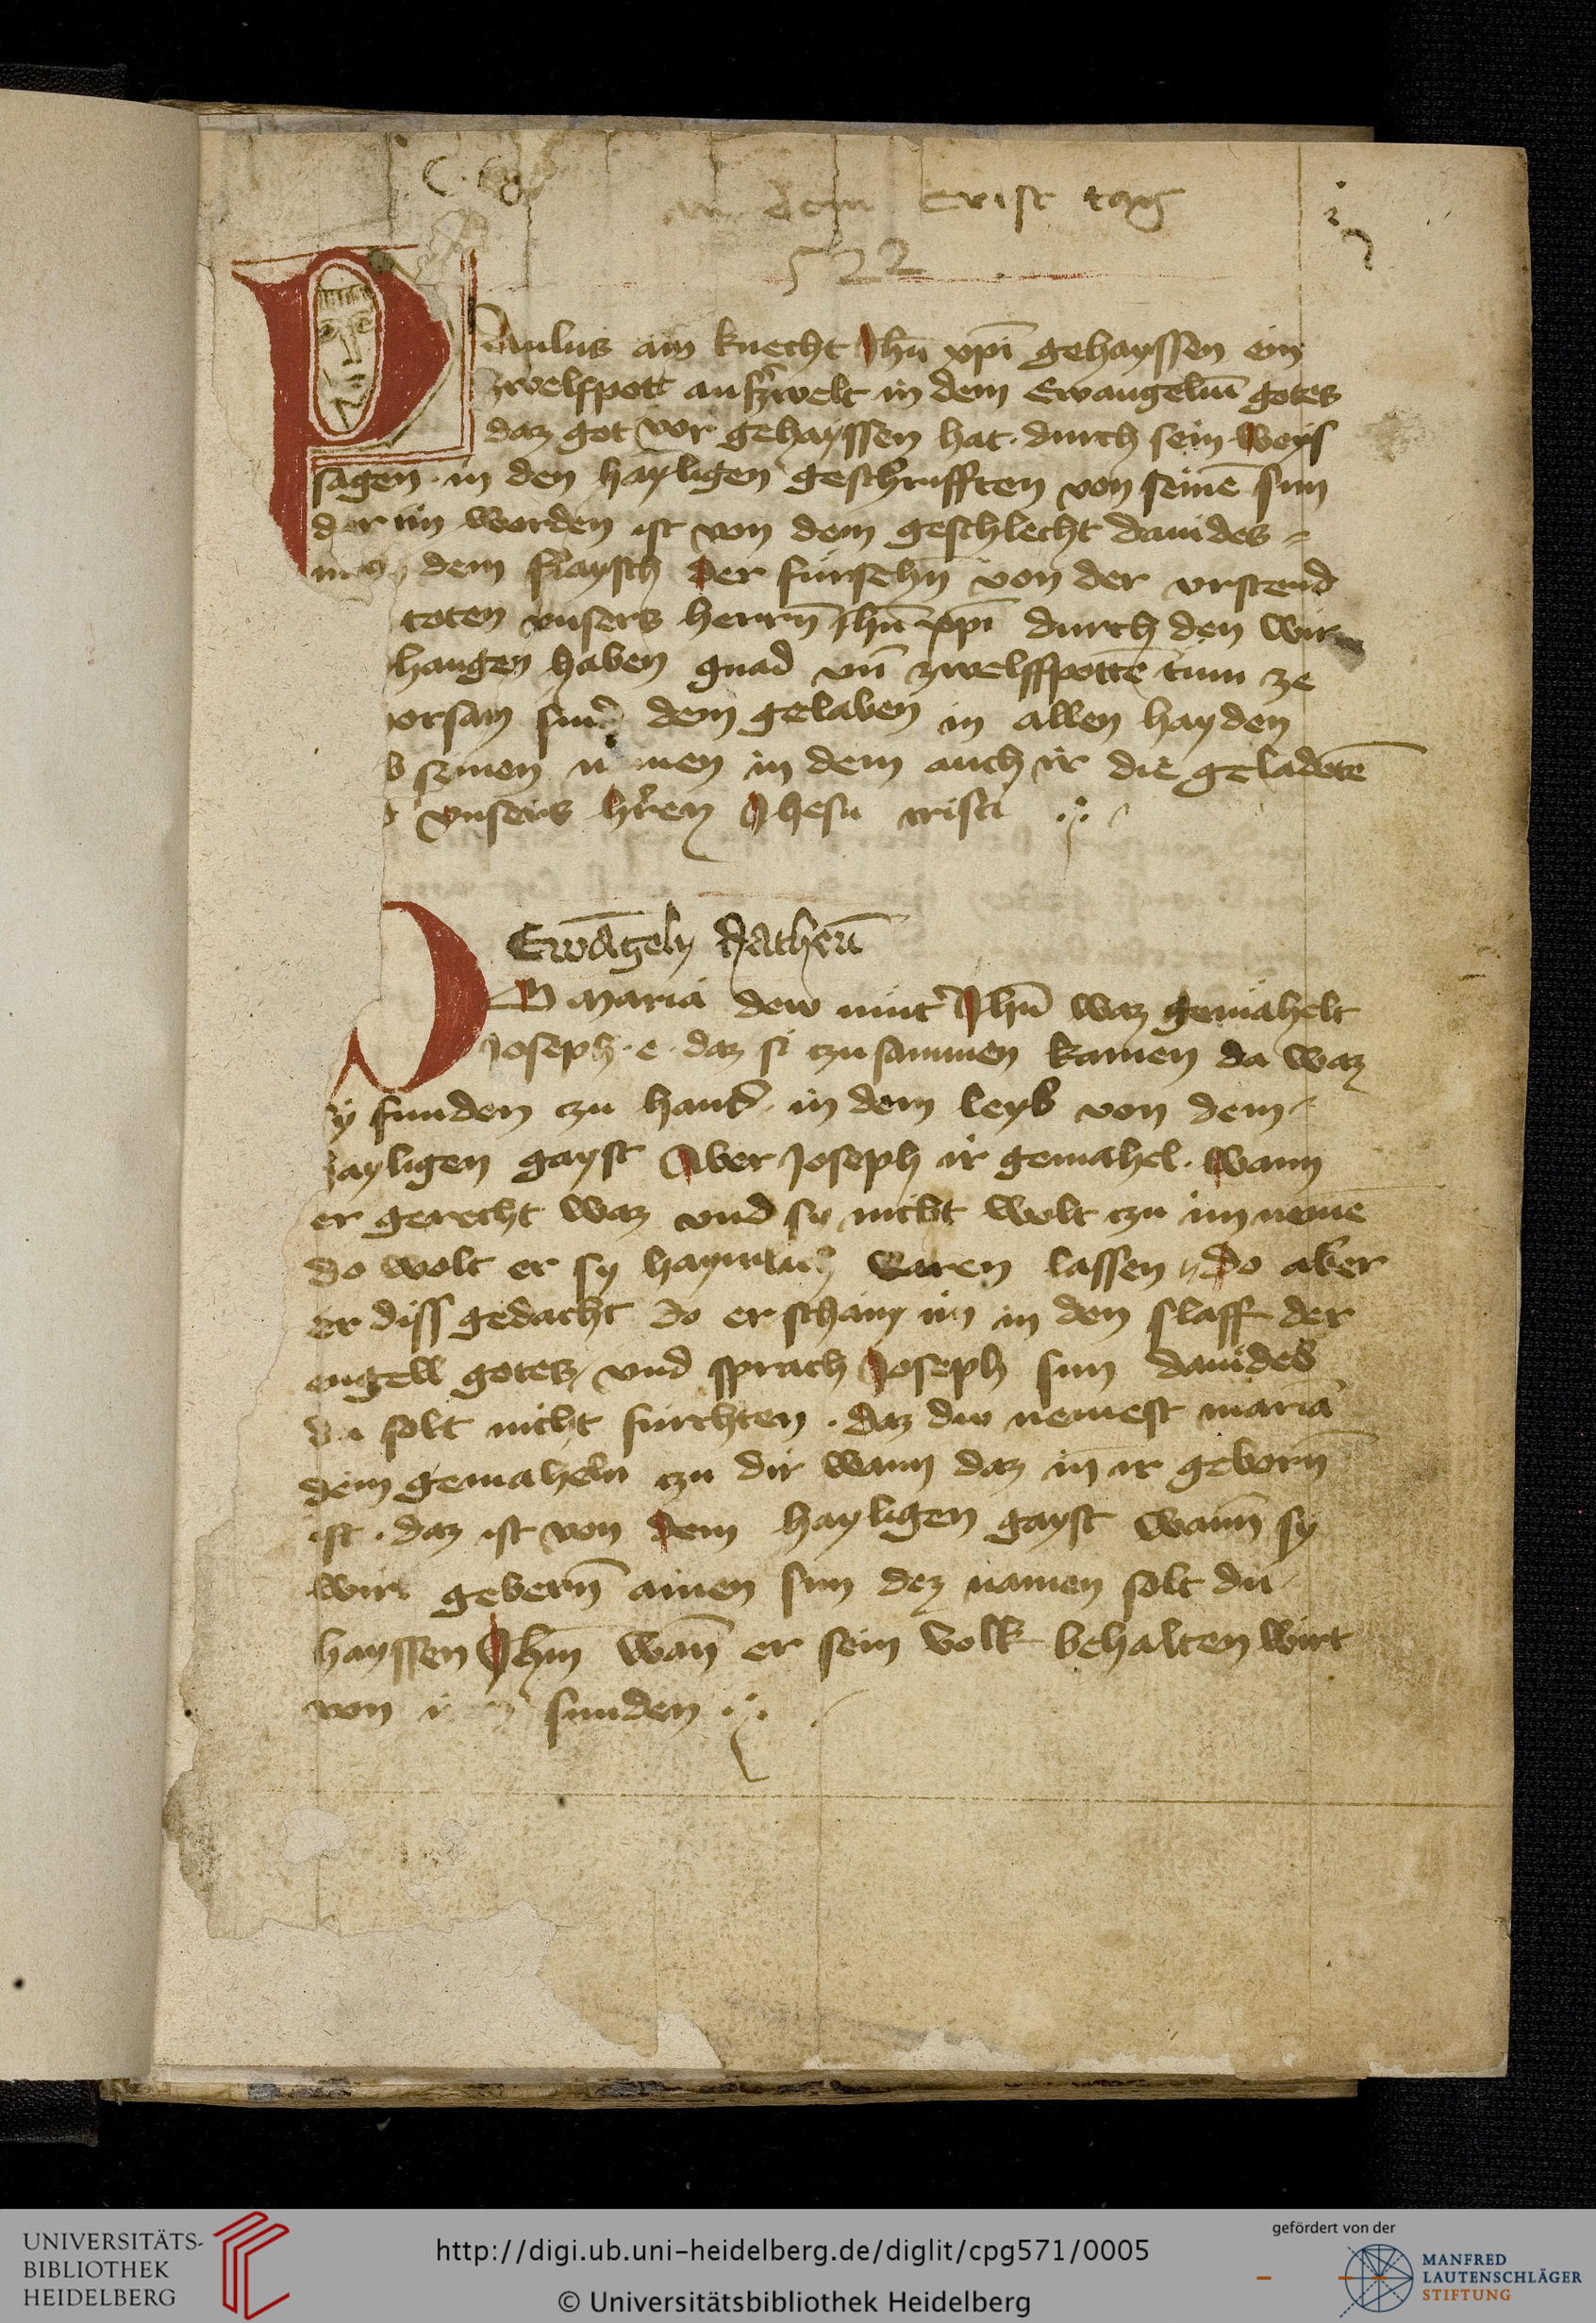 C. 698
an dem Crist tag
522
Paulus ain knecht Jhū xpī gehayssen ein
zwelfpott auszwelt in dem Ewangeliū gotes
daz got vor gehayssen hat · durch sein weys
sagen · in den hayligen geschrifften von seinē sun
der im worden ist von dem geschlecht dauides
nach dem flaysch der fürsehn̄ von der vrstend
toten vnsers herrn̄ Jhū xpī durch den wir
phangen haben gnad vn̄ zwelffpottē tum ze
horsam sind dem gelaben in allen hayden
vmb seinen namen in dem auch ir die geladotē
vnsers hr̄en Jhesu cristi
Ewāgely Matheū
Do Maria dew mut̄ Jhū waz gemähelt
Joseph · e · daz si czusammen kamen da waz
sy funden czu hant in dem leyb von dem
hayligen gayst Aber Joseph ir gemahel · wann
er gerecht waz vnd sy nicht wolt czu im neme
do wolt er sy haymlich varen lassen do aber
er diss gedacht do erschain im in den slaff der
engell gotes / vnd sprach Joseph sun dauides
du solt nicht fürchten · daz du nemest mariā
dein gemaheln czu dir wann daz in ir geborn̄
ist · daz ist von dem hayligen gayst wann̄ sy
wirt gebern̄ ainen sun dez namen solt du
hayssen Jhm̄ wan̄ er sein volk behalten wirt
von sunden
UNIVERSITÄTS-
BIBLIOTHEK
HEIDELBERG
http://digi.ub.uni-heidelberg.de/diglit/cpg571/0005
© Universitätsbibliothek Heidelberg
gefördert von der
MANFRED
LAUTENSCHLÄGER
STIFTUNG